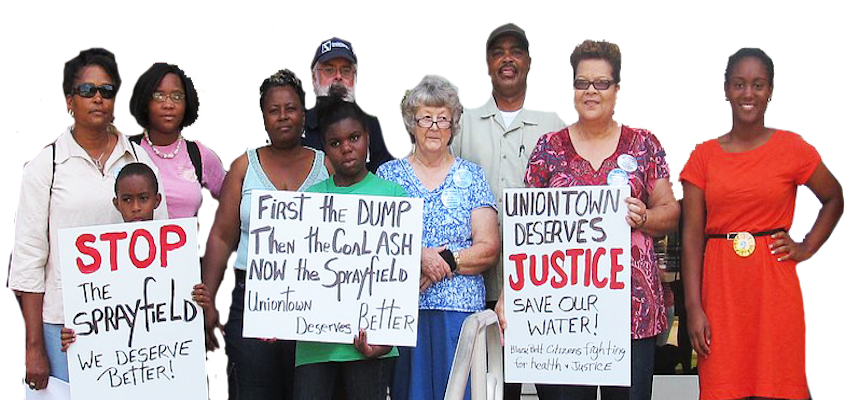 STOP
THE
SPRAYFIELD
WE DESERVE
BETTER!
FIRST THE DUMP
THEN THE COAL ASH
NOW THE SPRAYFIELD
UNIONTOWN
DESERVES BETTER
UNIONTOWN
DESERVES
JUSTICE
SAVE OUR
WATER!
Black Belt Citizens fighting
for health & JUSTICE